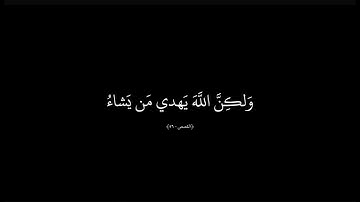 وَلَكِنَّ اللَّهَ يَهدي مَن يَشاءُ
﴿القصص ٥٦﴾